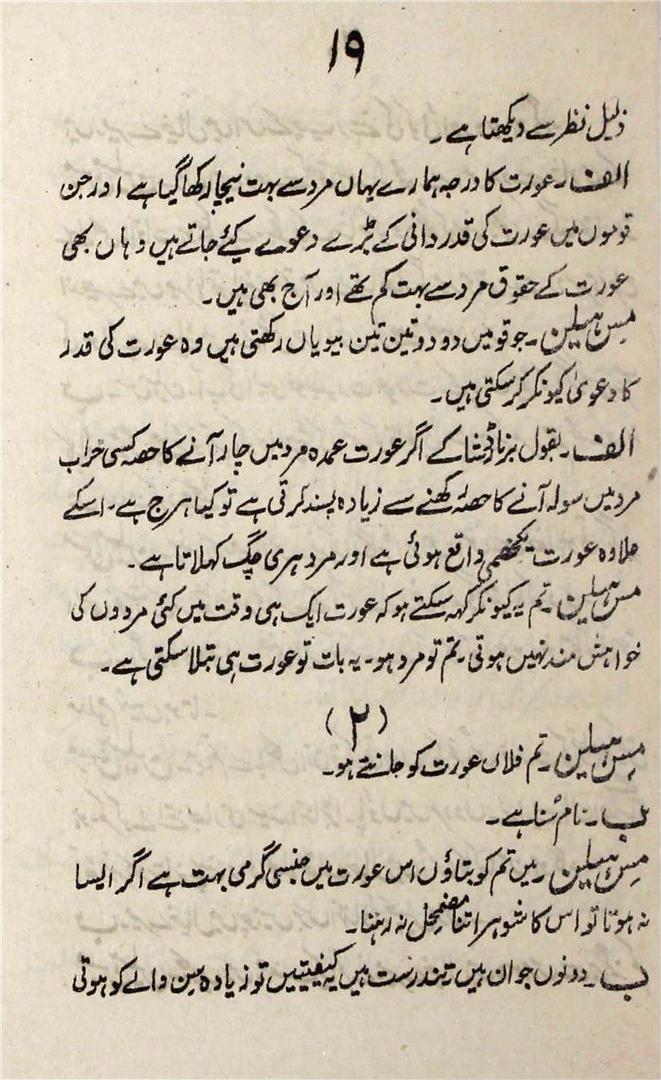 ۱۹
ذلیل نظر سے دیکھتا ہے۔
الف۔ عورت کا درجہ ہمارے یہاں مرد سے بہت نیچا رکھا گیا ہے اور جن
قوموں میں عورت کی قدر دانی کے بڑے دعوے کئے جاتے ہیں وہاں بھی
عورت کے حقوق مرد سے بہت کم تھے اور آج بھی ہیں۔
مس ہیلین۔ جو قومیں دو دو تین تین بیویاں رکھتی ہیں وہ عورت کی قدر
کا دعویٰ کیونکر کر سکتی ہیں۔
الف۔ بقول برناڈشا کے اگر عورت عمدہ مرد میں چار آنے کا حصہ کسی خراب
مرد میں سولہ آنے کا حصہ رکھنے سے زیادہ پسند کرتی ہے تو کیا ہرج ہے۔ اسکے
علاوہ عورت یکخصمی واقع ہوئی ہے اور مرد ہری چگ کہلاتا ہے۔
مس ہیلین۔ تم یہ کیونکر کہہ سکتے ہو کہ عورت ایک ہی وقت میں کئی مردوں کی
خواہش مند نہیں ہوتی۔ تم تو مرد ہو۔ یہ بات تو عورت ہی بتلا سکتی ہے۔
(۲)
مس ہیلین۔ تم فلاں عورت کو جانتے ہو۔
ب۔ نام سُنا ہے۔
مس ہیلین۔ میں تم کو بتاؤں اس عورت میں جنسی گرمی بہت ہے اگر ایسا
نہ ہوتا تو اس کا شوہر اتنا مضمحل نہ رہتا۔
ب۔ دونوں جوان ہیں تندرست ہیں یہ کیفیتیں تو زیادہ سِن والے کو ہوتی